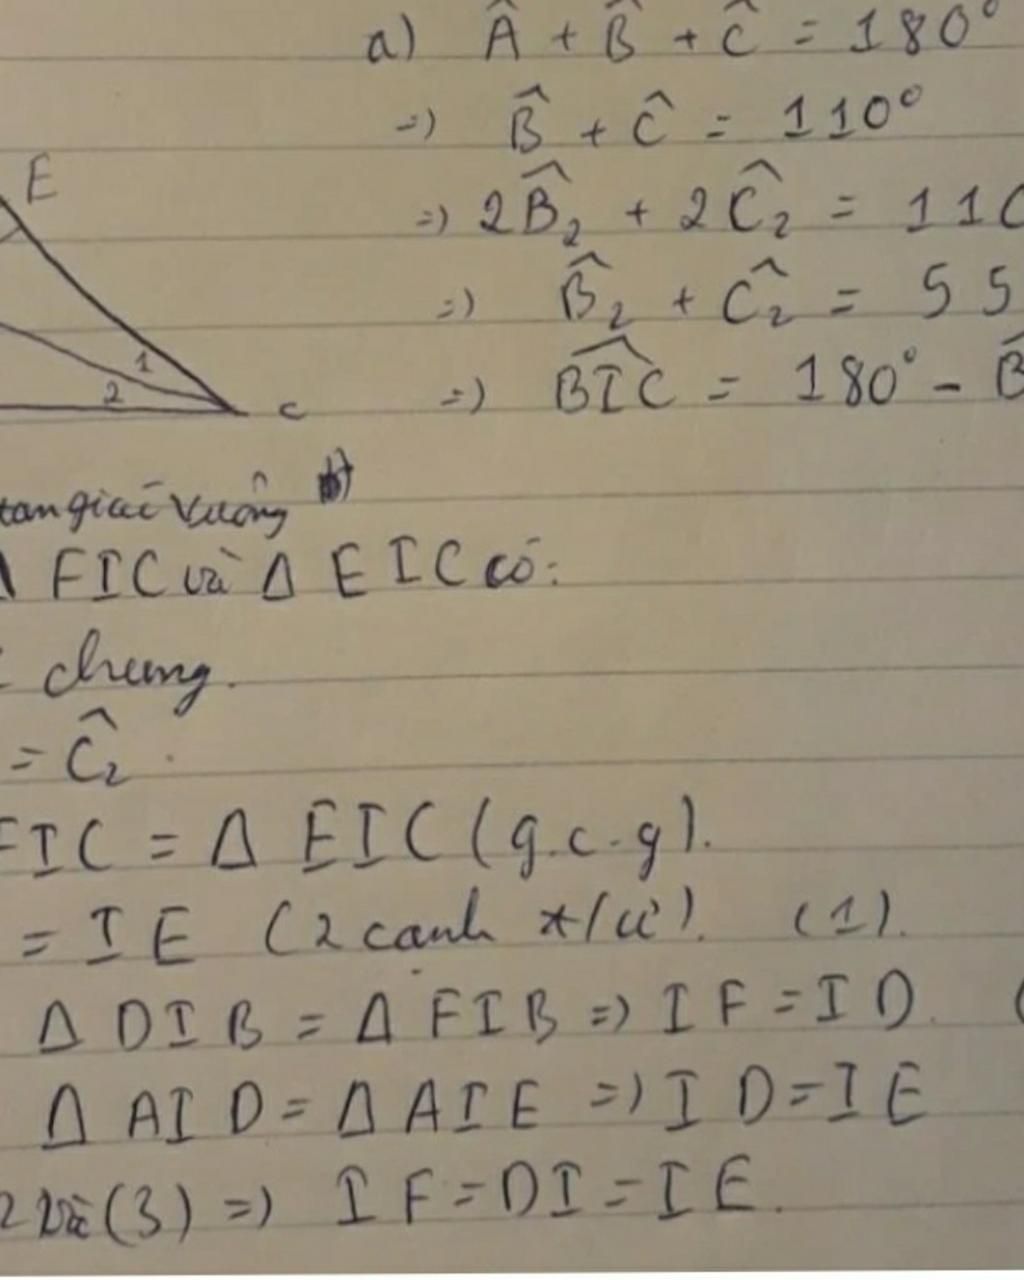 a) Â + B̂ + Ĉ = 180°
=) B̂ + Ĉ = 110°
E
=) 2B̂₂ + 2Ĉ₂ = 110
=) B̂₂ + Ĉ₂ = 55
1
2
C
=) BÎC = 180° - B̂
tam giác vuông
Δ FIC và Δ EIC có:
chung.
= Ĉ₂
FIC = Δ EIC (g.c.g).
= IE (2 cạnh t/ứ). (1).
Δ DIB = Δ FIB =) IF = ID. (
Δ AID = Δ AIE =) ID = IE
2 và (3) =) IF = DI = IE.